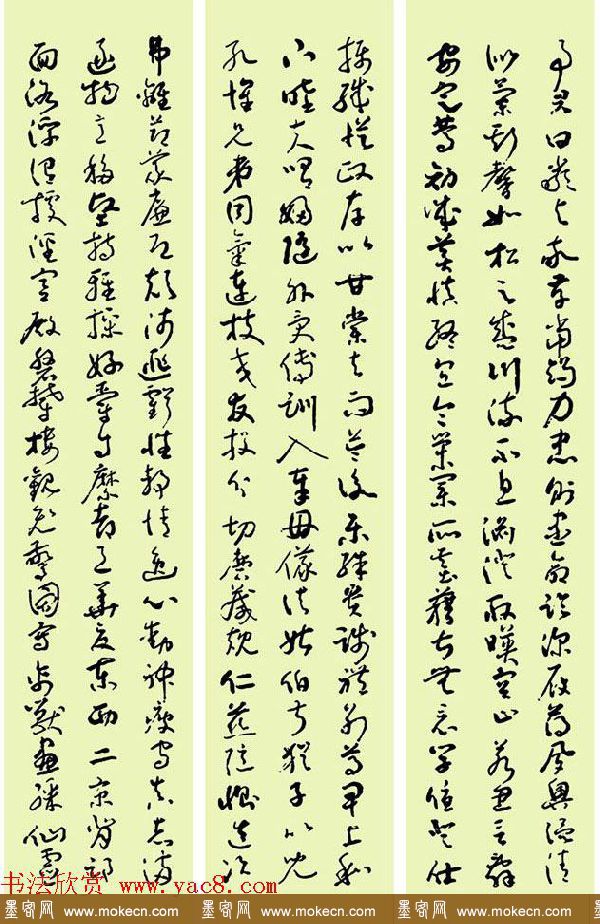 事君曰嚴與敬孝當竭力忠則盡命臨深履薄夙興溫凊
似蘭斯馨如松之盛川流不息淵澄取映容止若思言辭
安定篤初誠美慎終宜令榮業所基藉甚無竟學優登仕
攝職從政存以甘棠去而益詠樂殊貴賤禮別尊卑上和
下睦夫唱婦隨外受傅訓入奉母儀諸姑伯叔猶子比兒
孔懷兄弟同氣連枝交友投分切磨箴規仁慈隱惻造次
弗離節義廉退顛沛匪虧性靜情逸心動神疲守真志滿
逐物意移堅持雅操好爵自縻都邑華夏東西二京背邙
面洛浮渭據涇宮殿盤鬱樓觀飛驚圖寫禽獸畫彩仙靈
书法欣赏 www.yac8.com
墨客网 www.mokecn.com
墨客网 www.mokecn.com
墨客网 www.mokecn.com